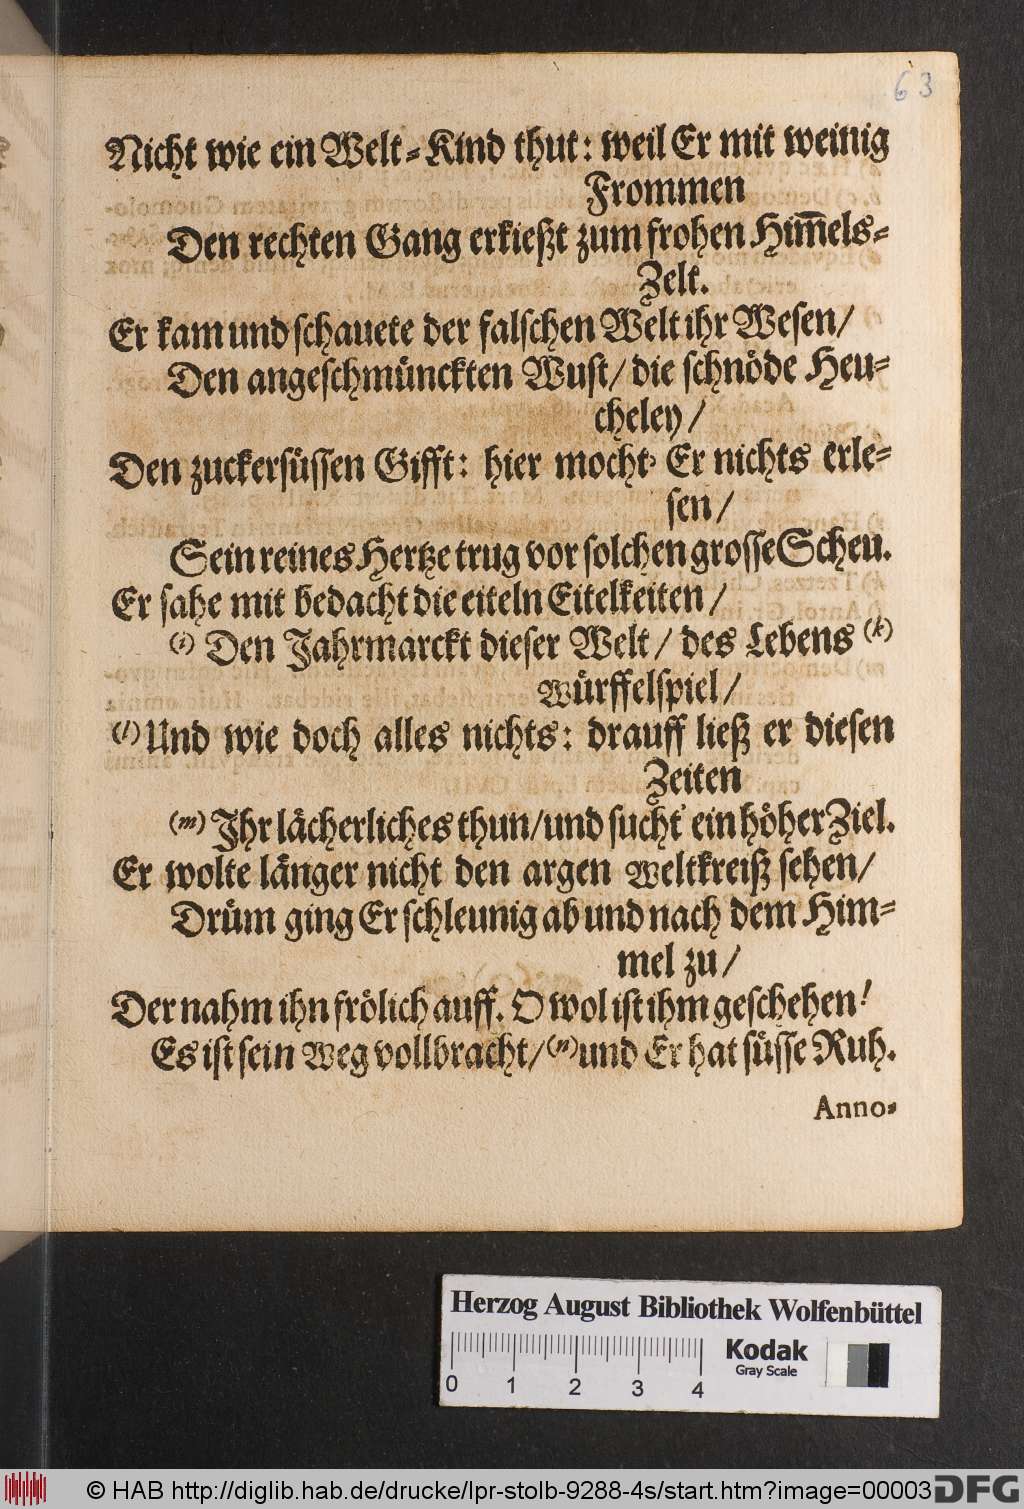 63
Nicht wie ein Welt-Kind thut: weil Er mit weinig
Frommen
Den rechten Gang erkießt zum frohen Him̅els-
Zelt.
Er kam und schauete der falschen Welt ihr Wesen/
Den angeschmünckten Wust/ die schnöde Heu-
cheley/
Den zuckersüssen Gifft: hier mocht' Er nichts erle-
sen/
Sein reines Hertze trug vor solchen grosse Scheu.
Er sahe mit bedacht die eiteln Eitelkeiten/
(i) Den Jahrmarckt dieser Welt/ des Lebens (k)
Würffelspiel/
(l) Und wie doch alles nichts: drauff ließ er diesen
Zeiten
(m) Ihr lächerliches thun/und sucht' ein höher Ziel.
Er wolte länger nicht den argen Weltkreiß sehen/
Drüm ging Er schleunig ab und nach dem Him-
mel zu/
Der nahm ihn frölich auff. O wol ist ihm geschehen!
Es ist sein Weg vollbracht/(n) und Er hat süsse Ruh.
Anno-
Herzog August Bibliothek Wolfenbüttel
0 1 2 3 4
Kodak
Gray Scale
© HAB http://diglib.hab.de/drucke/lpr-stolb-9288-4s/start.htm?image=00003
DFG